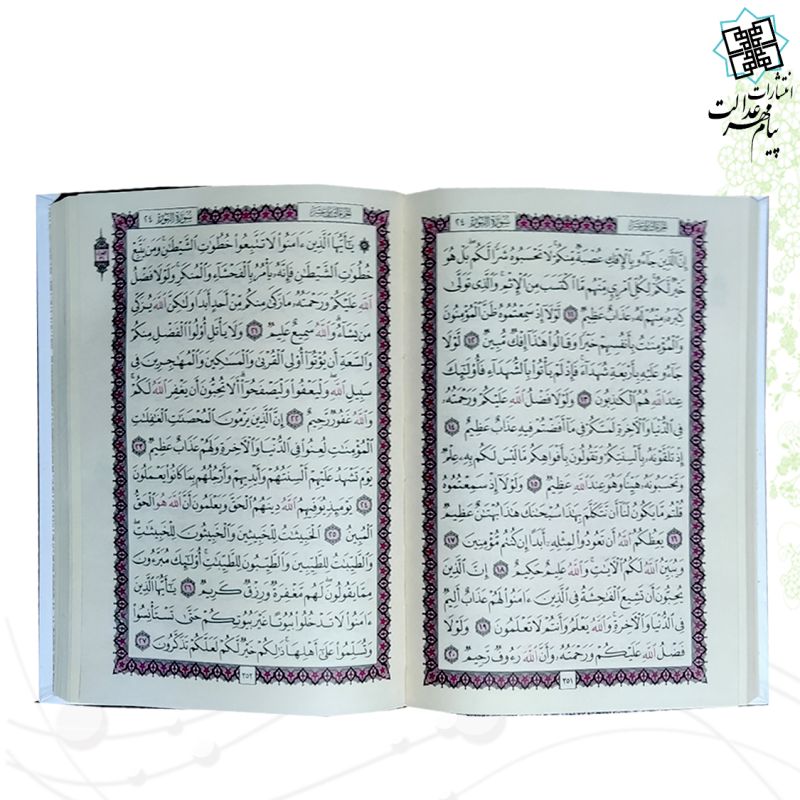 انتشارات
پیام مهر عدالت
سورة النور ٢٤
إِنَّ الَّذِينَ جَاءُو بِالْإِفْكِ عُصْبَةٌ مِّنكُمْ لَا تَحْسَبُوهُ شَرًّا لَّكُم بَلْ هُوَ
خَيْرٌ لَّكُمْ لِكُلِّ امْرِئٍ مِّنْهُم مَّا اكْتَسَبَ مِنَ الْإِثْمِ وَالَّذِي تَوَلَّى
كِبْرَهُ مِنْهُمْ لَهُ عَذَابٌ عَظِيمٌ ١١ لَّوْلَا إِذْ سَمِعْتُمُوهُ ظَنَّ الْمُؤْمِنُونَ
وَالْمُؤْمِنَاتُ بِأَنفُسِهِمْ خَيْرًا وَقَالُوا هَٰذَا إِفْكٌ مُّبِينٌ ١٢ لَّوْلَا
جَاءُو عَلَيْهِ بِأَرْبَعَةِ شُهَدَاءَ فَإِذْ لَمْ يَأْتُوا بِالشُّهَدَاءِ فَأُولَٰئِكَ
عِندَ اللَّهِ هُمُ الْكَاذِبُونَ ١٣ وَلَوْلَا فَضْلُ اللَّهِ عَلَيْكُمْ وَرَحْمَتُهُ
فِي الدُّنْيَا وَالْآخِرَةِ لَمَسَّكُمْ فِي مَا أَفَضْتُمْ فِيهِ عَذَابٌ عَظِيمٌ ١٤
إِذْ تَلَقَّوْنَهُ بِأَلْسِنَتِكُمْ وَتَقُولُونَ بِأَفْوَاهِكُم مَّا لَيْسَ لَكُم بِهِ عِلْمٌ
وَتَحْسَبُونَهُ هَيِّنًا وَهُوَ عِندَ اللَّهِ عَظِيمٌ ١٥ وَلَوْلَا إِذْ سَمِعْتُمُوهُ
قُلْتُم مَّا يَكُونُ لَنَا أَن نَّتَكَلَّمَ بِهَٰذَا سُبْحَانَكَ هَٰذَا بُهْتَانٌ عَظِيمٌ
١٦ يَعِظُكُمُ اللَّهُ أَن تَعُودُوا لِمِثْلِهِ أَبَدًا إِن كُنتُم مُّؤْمِنِينَ ١٧
وَيُبَيِّنُ اللَّهُ لَكُمُ الْآيَاتِ وَاللَّهُ عَلِيمٌ حَكِيمٌ ١٨ إِنَّ الَّذِينَ
يُحِبُّونَ أَن تَشِيعَ الْفَاحِشَةُ فِي الَّذِينَ آمَنُوا لَهُمْ عَذَابٌ أَلِيمٌ
فِي الدُّنْيَا وَالْآخِرَةِ وَاللَّهُ يَعْلَمُ وَأَنتُمْ لَا تَعْلَمُونَ ١٩ وَلَوْلَا
فَضْلُ اللَّهِ عَلَيْكُمْ وَرَحْمَتُهُ وَأَنَّ اللَّهَ رَءُوفٌ رَّحِيمٌ ٢٠
٣٥١
سورة النور ٢٤
يَا أَيُّهَا الَّذِينَ آمَنُوا لَا تَتَّبِعُوا خُطُوَاتِ الشَّيْطَانِ وَمَن يَتَّبِعْ
خُطُوَاتِ الشَّيْطَانِ فَإِنَّهُ يَأْمُرُ بِالْفَحْشَاءِ وَالْمُنكَرِ وَلَوْلَا فَضْلُ
اللَّهِ عَلَيْكُمْ وَرَحْمَتُهُ مَا زَكَىٰ مِنكُم مِّنْ أَحَدٍ أَبَدًا وَلَٰكِنَّ اللَّهَ يُزَكِّي
مَن يَشَاءُ وَاللَّهُ سَمِيعٌ عَلِيمٌ ٢١ وَلَا يَأْتَلِ أُولُو الْفَضْلِ مِنكُمْ
وَالسَّعَةِ أَن يُؤْتُوا أُولِي الْقُرْبَىٰ وَالْمَسَاكِينَ وَالْمُهَاجِرِينَ فِي
سَبِيلِ اللَّهِ وَلْيَعْفُوا وَلْيَصْفَحُوا أَلَا تُحِبُّونَ أَن يَغْفِرَ اللَّهُ لَكُمْ
وَاللَّهُ غَفُورٌ رَّحِيمٌ ٢٢ إِنَّ الَّذِينَ يَرْمُونَ الْمُحْصَنَاتِ الْغَافِلَاتِ
الْمُؤْمِنَاتِ لُعِنُوا فِي الدُّنْيَا وَالْآخِرَةِ وَلَهُمْ عَذَابٌ عَظِيمٌ ٢٣
يَوْمَ تَشْهَدُ عَلَيْهِمْ أَلْسِنَتُهُمْ وَأَيْدِيهِمْ وَأَرْجُلُهُم بِمَا كَانُوا يَعْمَلُونَ
٢٤ يَوْمَئِذٍ يُوَفِّيهِمُ اللَّهُ دِينَهُمُ الْحَقَّ وَيَعْلَمُونَ أَنَّ اللَّهَ هُوَ الْحَقُّ
الْمُبِينُ ٢٥ الْخَبِيثَاتُ لِلْخَبِيثِينَ وَالْخَبِيثُونَ لِلْخَبِيثَاتِ
وَالطَّيِّبَاتُ لِلطَّيِّبِينَ وَالطَّيِّبُونَ لِلطَّيِّبَاتِ أُولَٰئِكَ مُبَرَّءُونَ
مِمَّا يَقُولُونَ لَهُم مَّغْفِرَةٌ وَرِزْقٌ كَرِيمٌ ٢٦ يَا أَيُّهَا الَّذِينَ
آمَنُوا لَا تَدْخُلُوا بُيُوتًا غَيْرَ بُيُوتِكُمْ حَتَّىٰ تَسْتَأْنِسُوا
وَتُسَلِّمُوا عَلَىٰ أَهْلِهَا ذَٰلِكُمْ خَيْرٌ لَّكُمْ لَعَلَّكُمْ تَذَكَّرُونَ ٢٧
٣٥٢